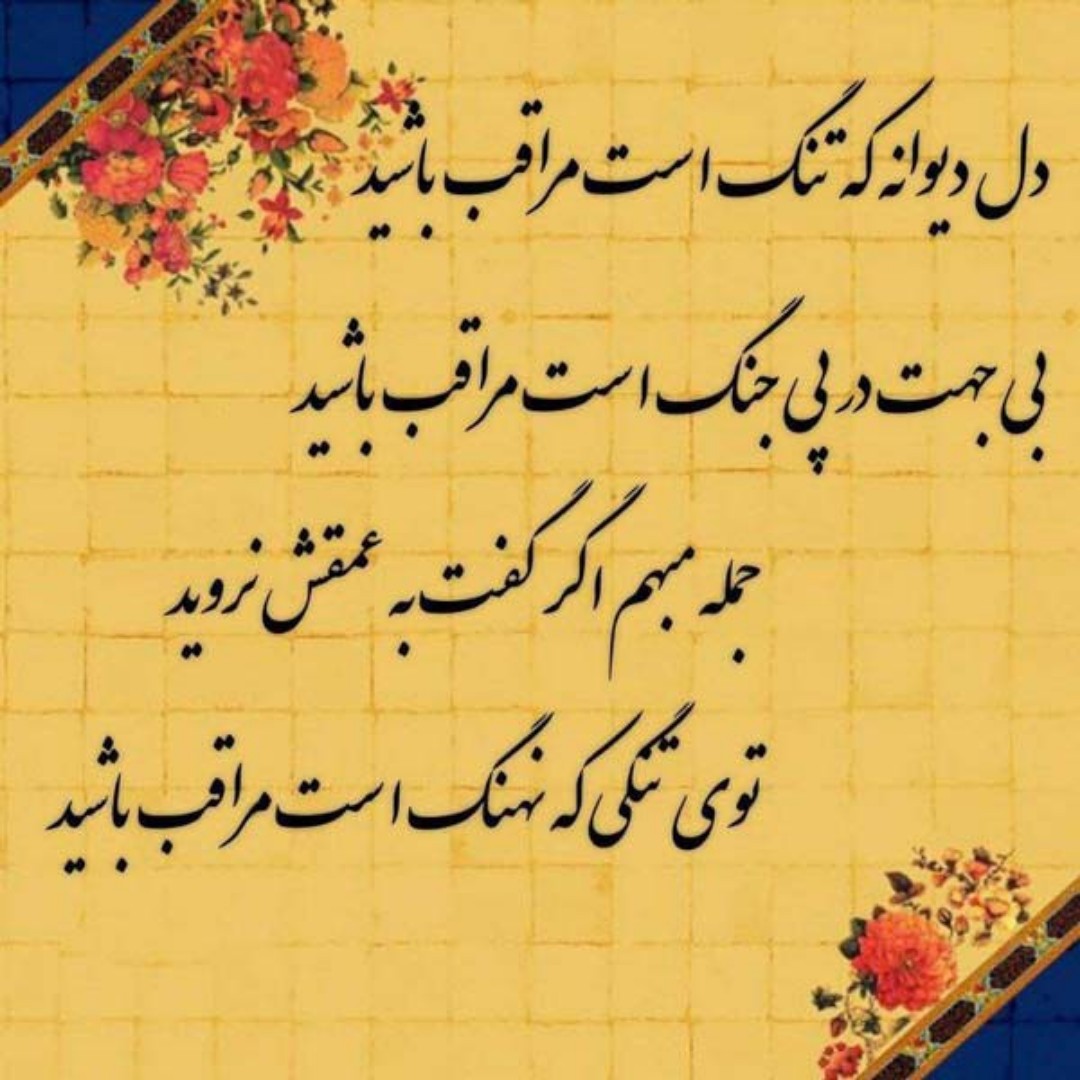 دل دیوانه که تنگ است مراقب باشید
بی جهت در پی جنگ است مراقب باشید
جمله مبهم اگر گفت به عمقش نروید
توی تنگی که نهنگ است مراقب باشید